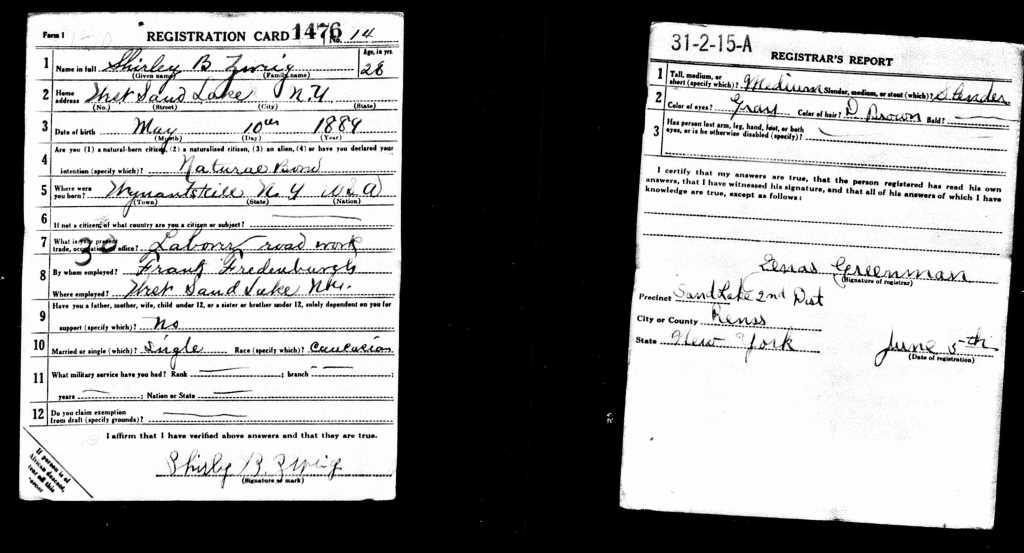 Form 1 REGISTRATION CARD 1476 No. 14
1 Name in full Shirley B Zweig Age, in yrs. 28
(Given name) (Family name)
2 Home address West Sand Lake N.Y
(No.) (Street) (City) (State)
3 Date of birth May 10th 1889
(Month) (Day) (Year)
4 Are you (1) a natural-born citizen, (2) a naturalized citizen, (3) an alien, (4) or have you declared your
intention (specify which)? Natural Born
5 Where were you born? Wynantskill N.Y USA
(Town) (State) (Nation)
6 If not a citizen, of what country are you a citizen or subject?
7 What is your present trade, occupation, or office? Laborer road work
30
8 By whom employed? Frank Fredenburgh
Where employed? West Sand Lake N.Y.
9 Have you a father, mother, wife, child under 12, or a sister or brother under 12, solely dependent on you for
support (specify which)? No
10 Married or single (which)? Single Race (specify which)? Caucasian
11 What military service have you had? Rank ; branch ;
years ; Nation or State
12 Do you claim exemption from draft (specify grounds)?
I affirm that I have verified above answers and that they are true.
Shirley B. Zweig
(Signature or mark)
If person is of
African descent,
tear off this
corner
31-2-15-A
REGISTRAR'S REPORT
1 Tall, medium, or short (specify which)? Medium Slender, medium, or stout (which)? Slender
2 Color of eyes? Gray Color of hair? D Brown Bald?
3 Has person lost arm, leg, hand, foot, or both eyes, or is he otherwise disabled (specify)?
I certify that my answers are true, that the person registered has read his own
answers, that I have witnessed his signature, and that all of his answers of which I have
knowledge are true, except as follows:
Zenas Greenman
(Signature of registrar)
Precinct Sand Lake 2nd Dist
City or County Renss
State New York June 5th
(Date of registration)